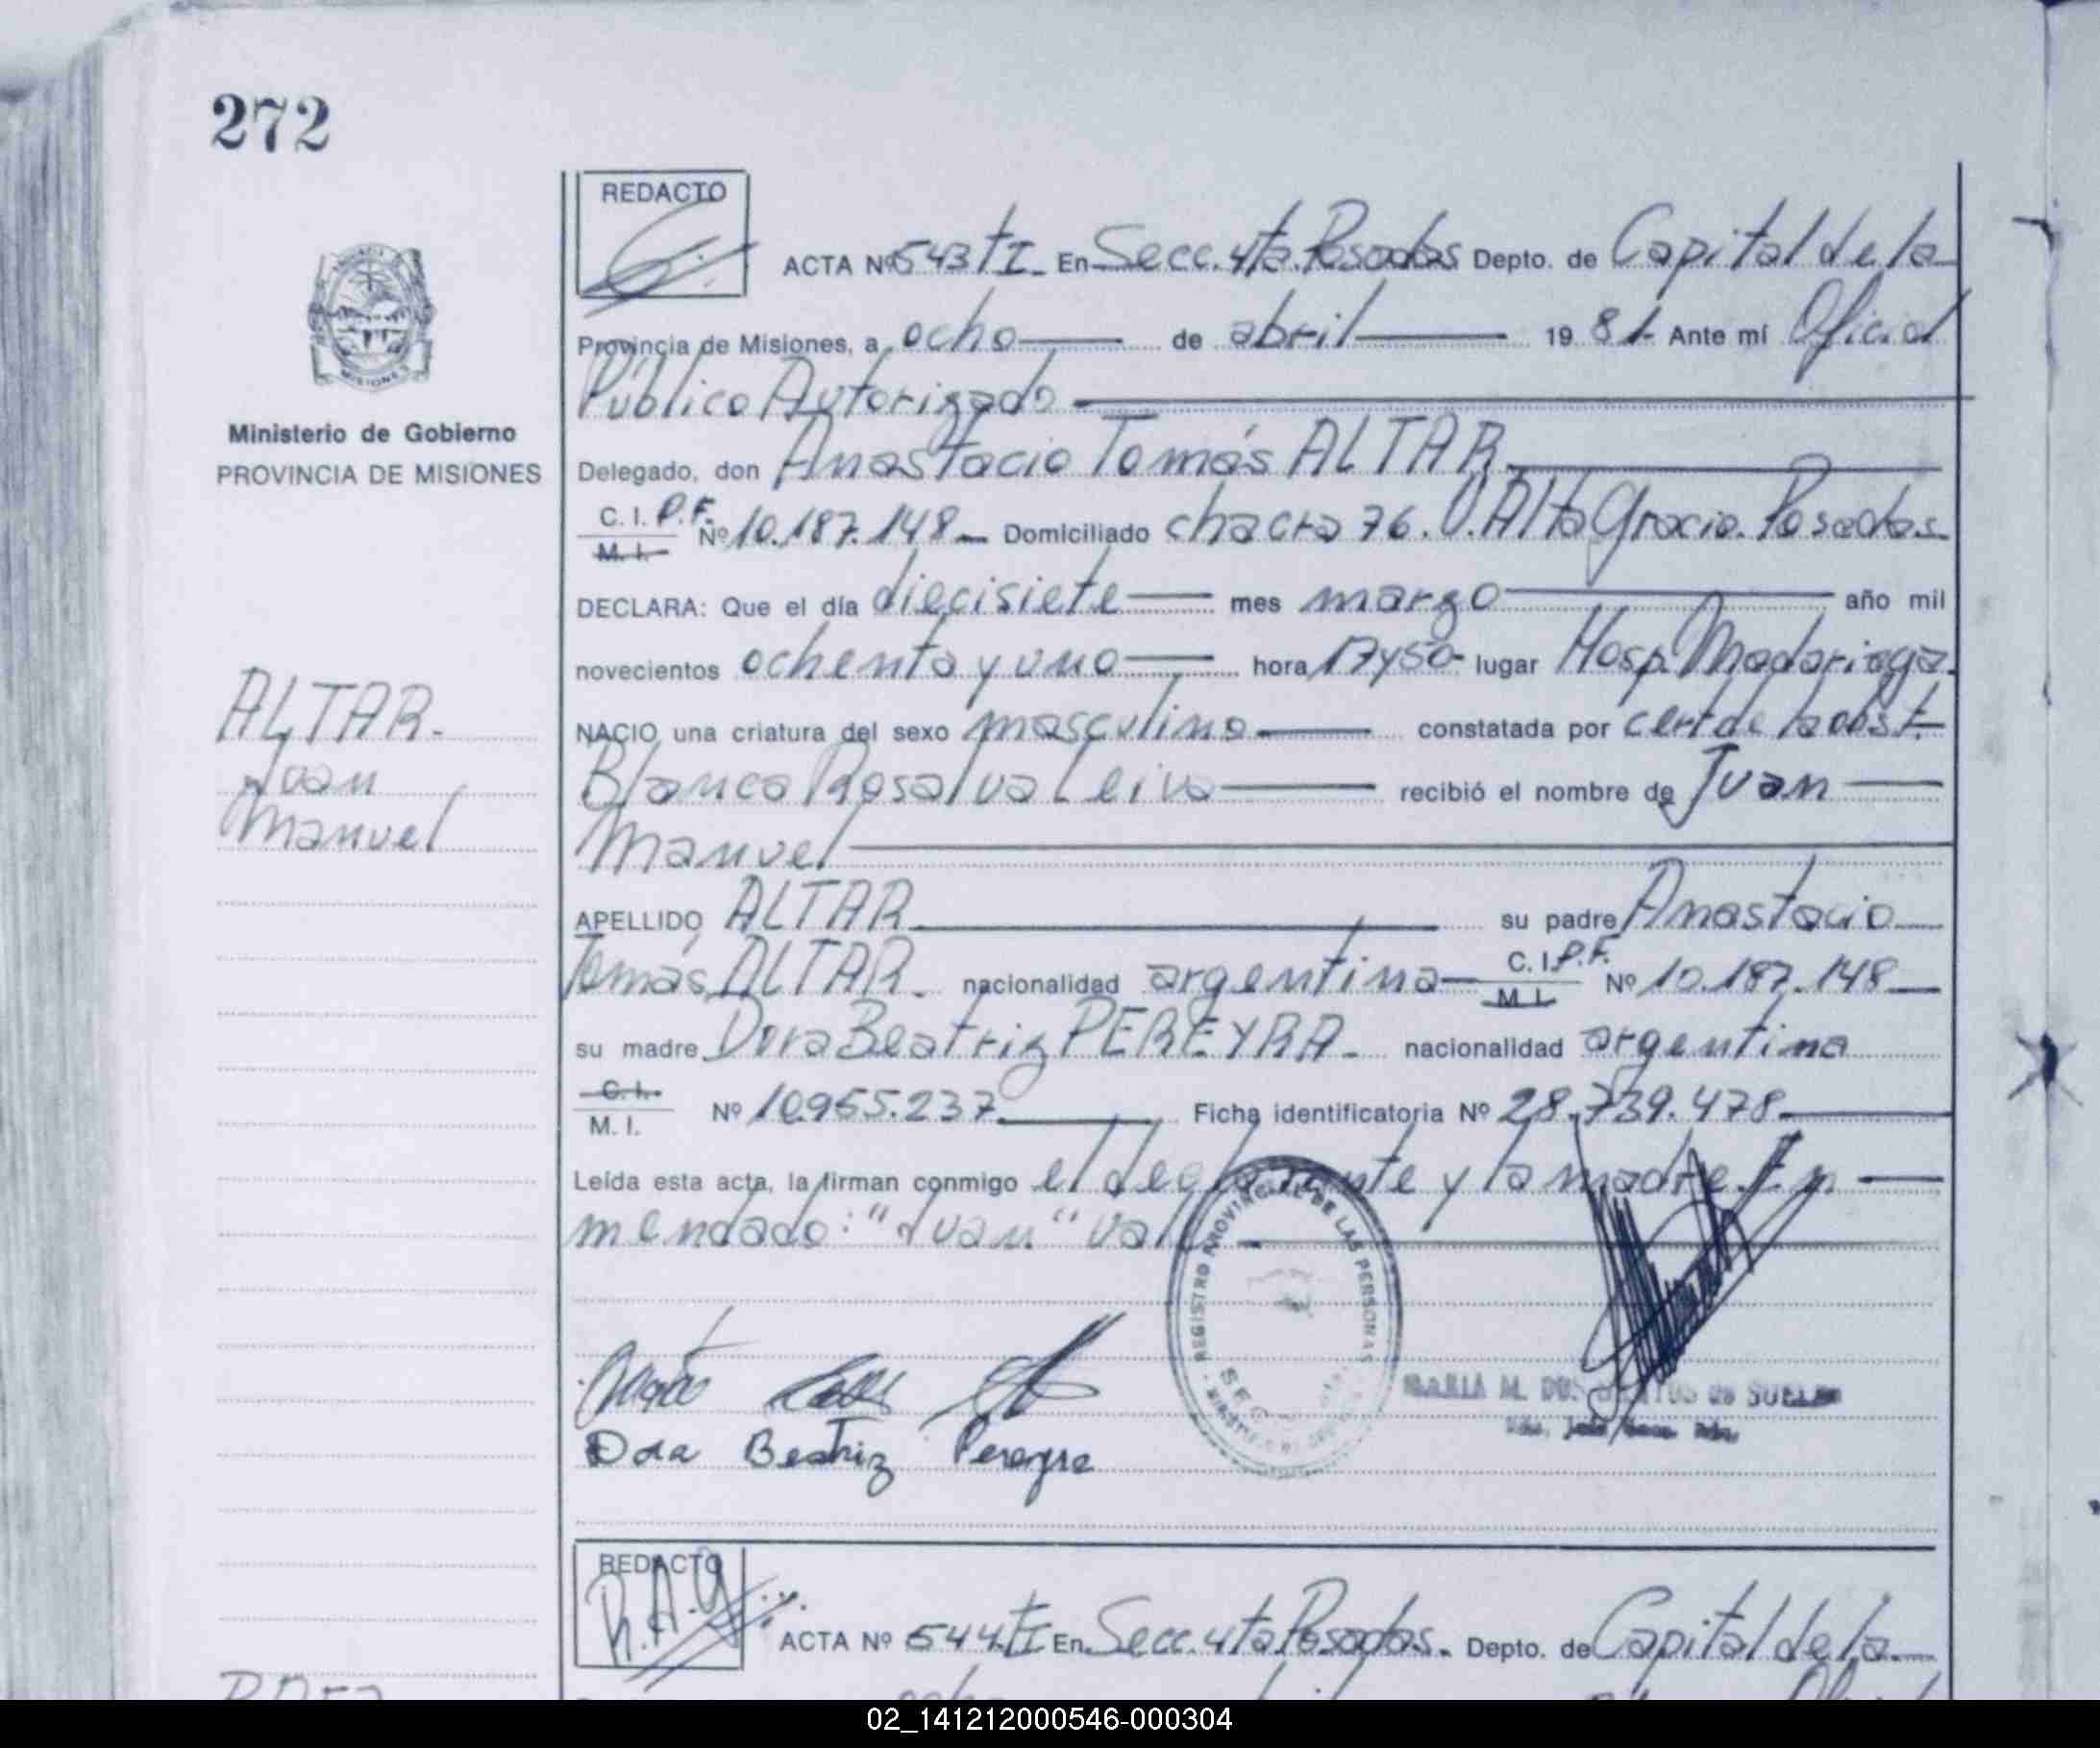 272
REDACTO
ACTA Nº 543 tI. En Secc. 4ta. Posadas Depto. de Capital de la
Provincia de Misiones, a ocho de abril 1981. Ante mí Oficial
Público Autorizado
Ministerio de Gobierno
PROVINCIA DE MISIONES
Delegado, don Anastacio Tomás ALTAR.
C. I. P.F. Nº 10.187.148 Domiciliado chacra 76. V. Alta Gracia. Posadas.
M. I.
DECLARA: Que el día diecisiete mes marzo año mil
novecientos ochenta y uno hora 17 y 50 lugar Hosp. Madariaga.
ALTAR.
Juan
Manuel
NACIO una criatura del sexo masculino constatada por cert de la obst.
Blanca Rosalva Leiva recibió el nombre de Juan
Manuel
APELLIDO ALTAR su padre Anastacio
Tomás ALTAR. nacionalidad argentina C. I. P.F. Nº 10.187.148
M. I.
su madre Dora Beatriz PEREYRA. nacionalidad argentina
C. I.
M. I. Nº 10.955.237 Ficha identificatoria Nº 28.739.478
Leída esta acta, la firman conmigo el declarante y la madre. En
mendado: "Juan" vale.
REGISTRO PROVINCIAL DE LAS PERSONAS
MARIA M. DOS SANTOS de
Dora Beatriz Pereyra
REDACTO
R.A.G
ACTA Nº 544 tI En Secc. 4ta Posadas. Depto. de Capital de la
02_141212000546-000304